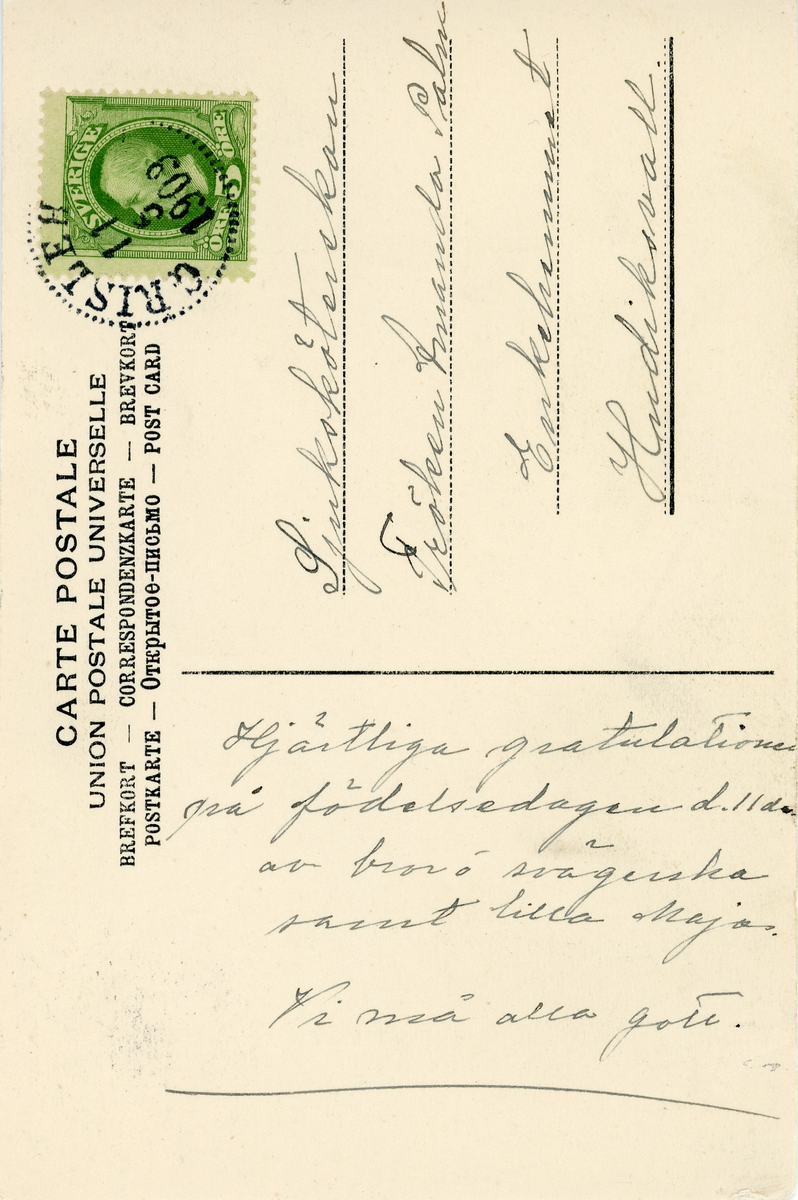 CARTE POSTALE
UNION POSTALE UNIVERSELLE
BREFKORT — CORRESPONDENZKARTE — BREVKORT
POSTKARTE — Открытое-письмо — POST CARD
SVERIGE
5 ÖRE
ÖRE
GRISLEH
11
5
1903
Sjuksköterskan
Fröken Amanda Palm
Enkehemmet
Hudiksvall.
Hjärtliga gratulationer
på födelsedagen d. 11 ds.
av bror o svägerska
samt lilla Maja.
Vi må alla gott.